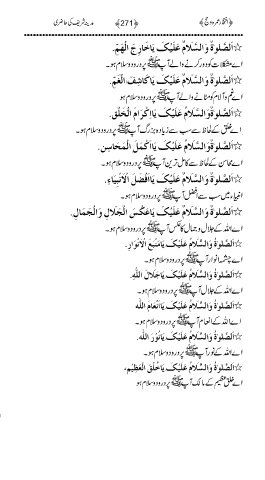 ﴿انوار عمرہ و حج﴾ ﴿271﴾ مدینہ شریف کی حاضری
☆اَلصَّلٰوةُ وَالسَّلَامُ عَلَيْكَ يَاخَارِجَ الْهَمِّ.
اے مشکلات کو دور کرنے والے آپ ﷺ پر درود و سلام ہو۔
☆اَلصَّلٰوةُ وَالسَّلَامُ عَلَيْكَ يَاكَاشِفَ الْغَمِّ.
اے غم و آلام کو مٹانے والے آپ ﷺ پر درود و سلام ہو۔
☆اَلصَّلٰوةُ وَالسَّلَامُ عَلَيْكَ يَااِكْرَامَ الْخَلْقِ.
اے خلق کے لحاظ سے سب سے زیادہ بزرگ آپ ﷺ پر درود و سلام ہو۔
☆اَلصَّلٰوةُ وَالسَّلَامُ عَلَيْكَ يَااَكْمَلَ الْمَحَاسِنِ.
اے محاسن کے لحاظ سے کامل ترین آپ ﷺ پر درود و سلام ہو۔
☆اَلصَّلٰوةُ وَالسَّلَامُ عَلَيْكَ يَااَفْضَلَ الْاَنْبِيَاءِ.
انبیاء میں سب سے افضل آپ ﷺ پر درود و سلام ہو۔
☆اَلصَّلٰوةُ وَالسَّلَامُ عَلَيْكَ يَاعَكْسَ الْجَلَالِ وَالْجَمَالِ.
اے اللہ کے جلال و جمال کا عکس آپ ﷺ پر درود و سلام ہو۔
☆اَلصَّلٰوةُ وَالسَّلَامُ عَلَيْكَ يَامَنْبَعَ الْاَنْوَارِ.
اے چشمہ انوار آپ ﷺ پر درود و سلام ہو۔
☆اَلصَّلٰوةُ وَالسَّلَامُ عَلَيْكَ يَاجَلَالَ اللّٰهِ.
اے اللہ کے جلال آپ ﷺ پر درود و سلام ہو۔
☆اَلصَّلٰوةُ وَالسَّلَامُ عَلَيْكَ يَااِنْعَامَ اللّٰهِ
اے اللہ کے انعام آپ ﷺ پر درود و سلام ہو۔
☆اَلصَّلٰوةُ وَالسَّلَامُ عَلَيْكَ يَانُوْرَ اللّٰهِ.
اے اللہ کے نور آپ ﷺ پر درود و سلام ہو۔
☆اَلصَّلٰوةُ وَالسَّلَامُ عَلَيْكَ يَاخُلْقَ الْعَظِيْمِ.
اے خلق عظیم کے مالک آپ ﷺ پر درود و سلام ہو